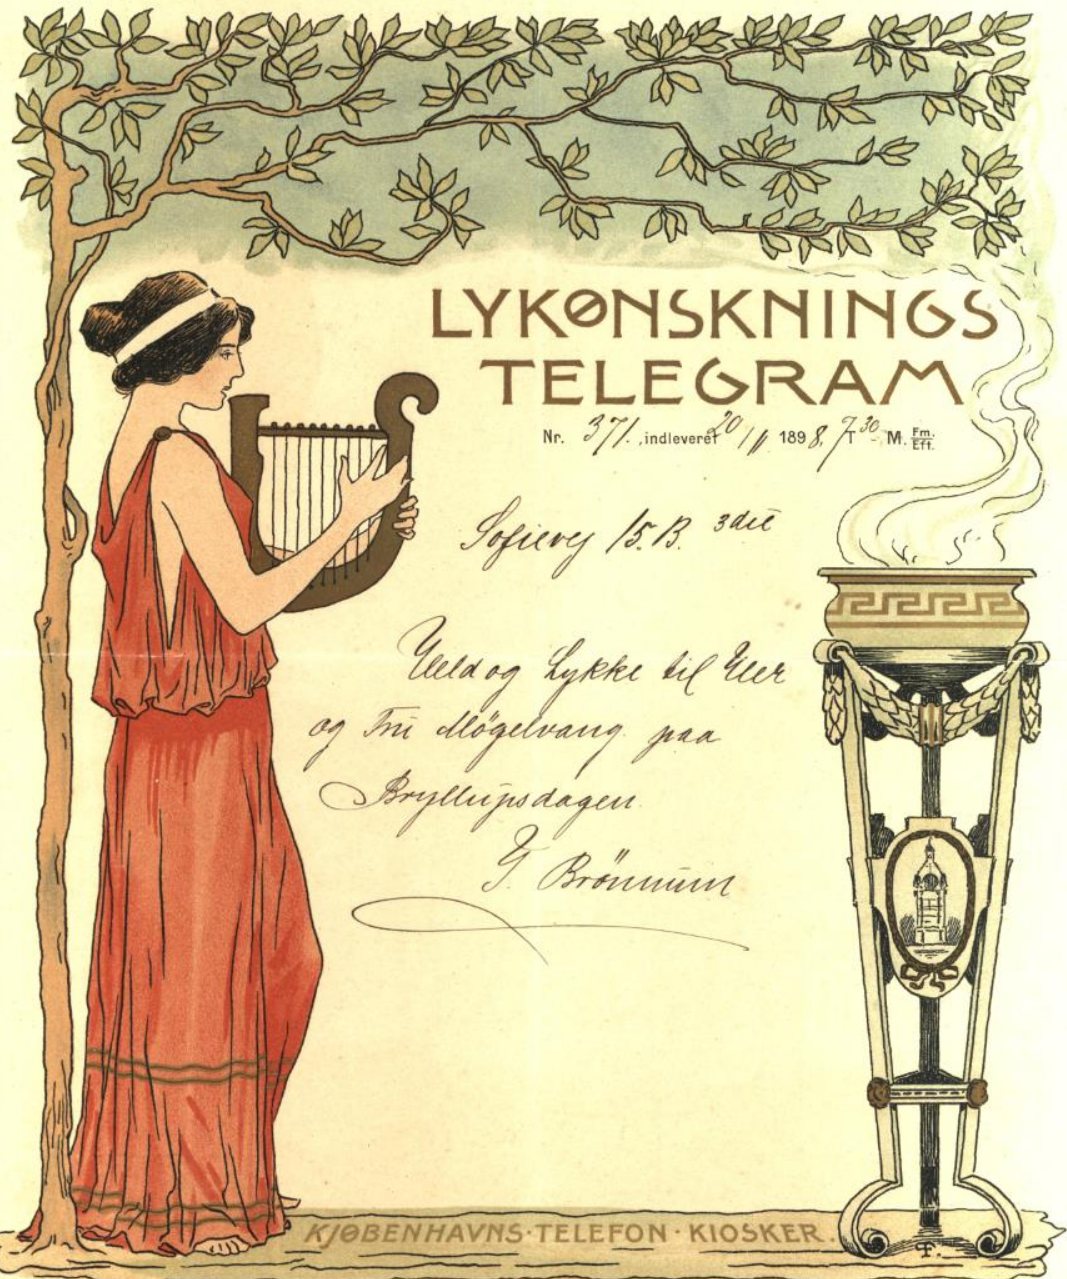 LYKØNSKNINGS
TELEGRAM
Nr. 371. , indleveret 20/11 1898. 7 T 30 M. Fm. Eft.
Sofievej 15. B. 3die
Held og Lykke til Herr
og Fru Mögelvang paa
Bryllupsdagen
Brönnum
KJØBENHAVNS·TELEFON·KIOSKER.